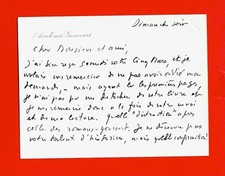 Dimanche soir
Académie Goncourt
Cher Monsieur et ami,
J'ai bien reçu samedi votre Cinq Mars, et je
voulais vous remercier de ne pas avoir oublié ma
demande, – mais ayant lu les premières pages,
je n'ai pas pu me détacher de votre livre et
je vous remercie donc à la fois de votre envoi
et de ma lecture. Quelle "distraction" après
celle des romans
votre talent d'historien, mais quelle confirmation